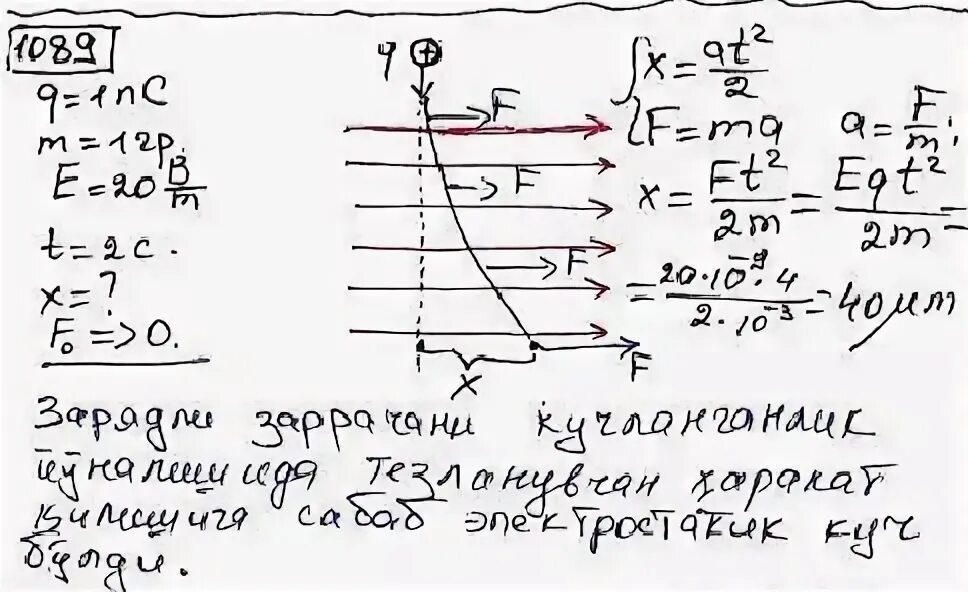 1089
q=1nC
m=1гр.
E=20 В/m
t=2c.
x=?
F₀=>0.
q +
F
F
F
F
x
{x=at²/2
{F=ma a=F/m;
x=Ft²/2m=Eqt²/2m=
=20·10⁻⁹·4/2·10⁻³=40мm
Зарядли заррачани кучланганлик
йўналишида тезланувчан ҳаракат
қилишига сабаб электростатик куч
бўлди.